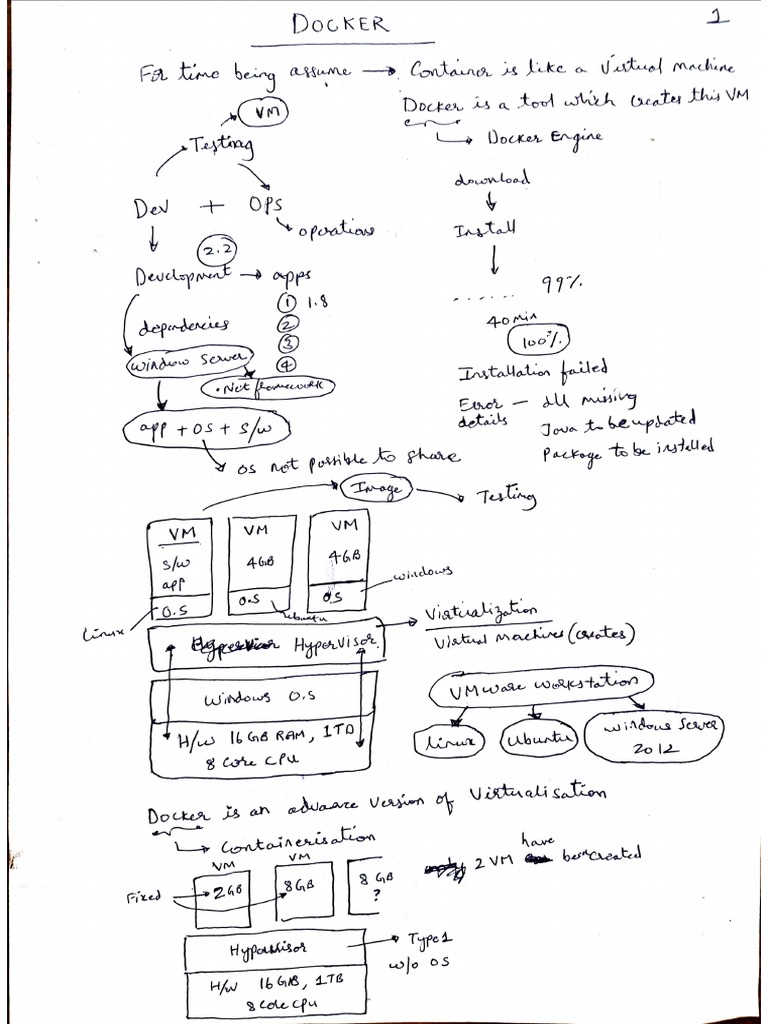 DOCKER
1
For time being assume → Container is like a Virtual machine
Docker is a tool which creates this VM
Docker Engine
VM
Testing
Dev + OPS
operations
2.2
Development → apps
1 1.8
2
3
4
dependencies
Window Server
.Net framework
app + OS + S/W
OS not possible to share
download
Install
...... 99%
40 min
100%
Installation failed
Error details — dll missing
Java to be updated
Package to be installed
Image → Testing
VM
S/W
app
O.S
Linux
VM
4GB
O.S
ubuntu
VM
4GB
O.S
windows
Hypervisor
Virtualization
Virtual Machines (creates)
Windows O.S
H/W 16 GB RAM, 1TD
8 core CPU
VMware workstation
Linux
Ubuntu
Windows Server 2012
Docker is an advance version of Virtualisation
Containerisation
VM
VM
Fixed
2GB
8GB
8 GB
?
2 VM have been created
Hypervisor
Type 1
w/o OS
H/W 16GB, 1TB
8 core CPU